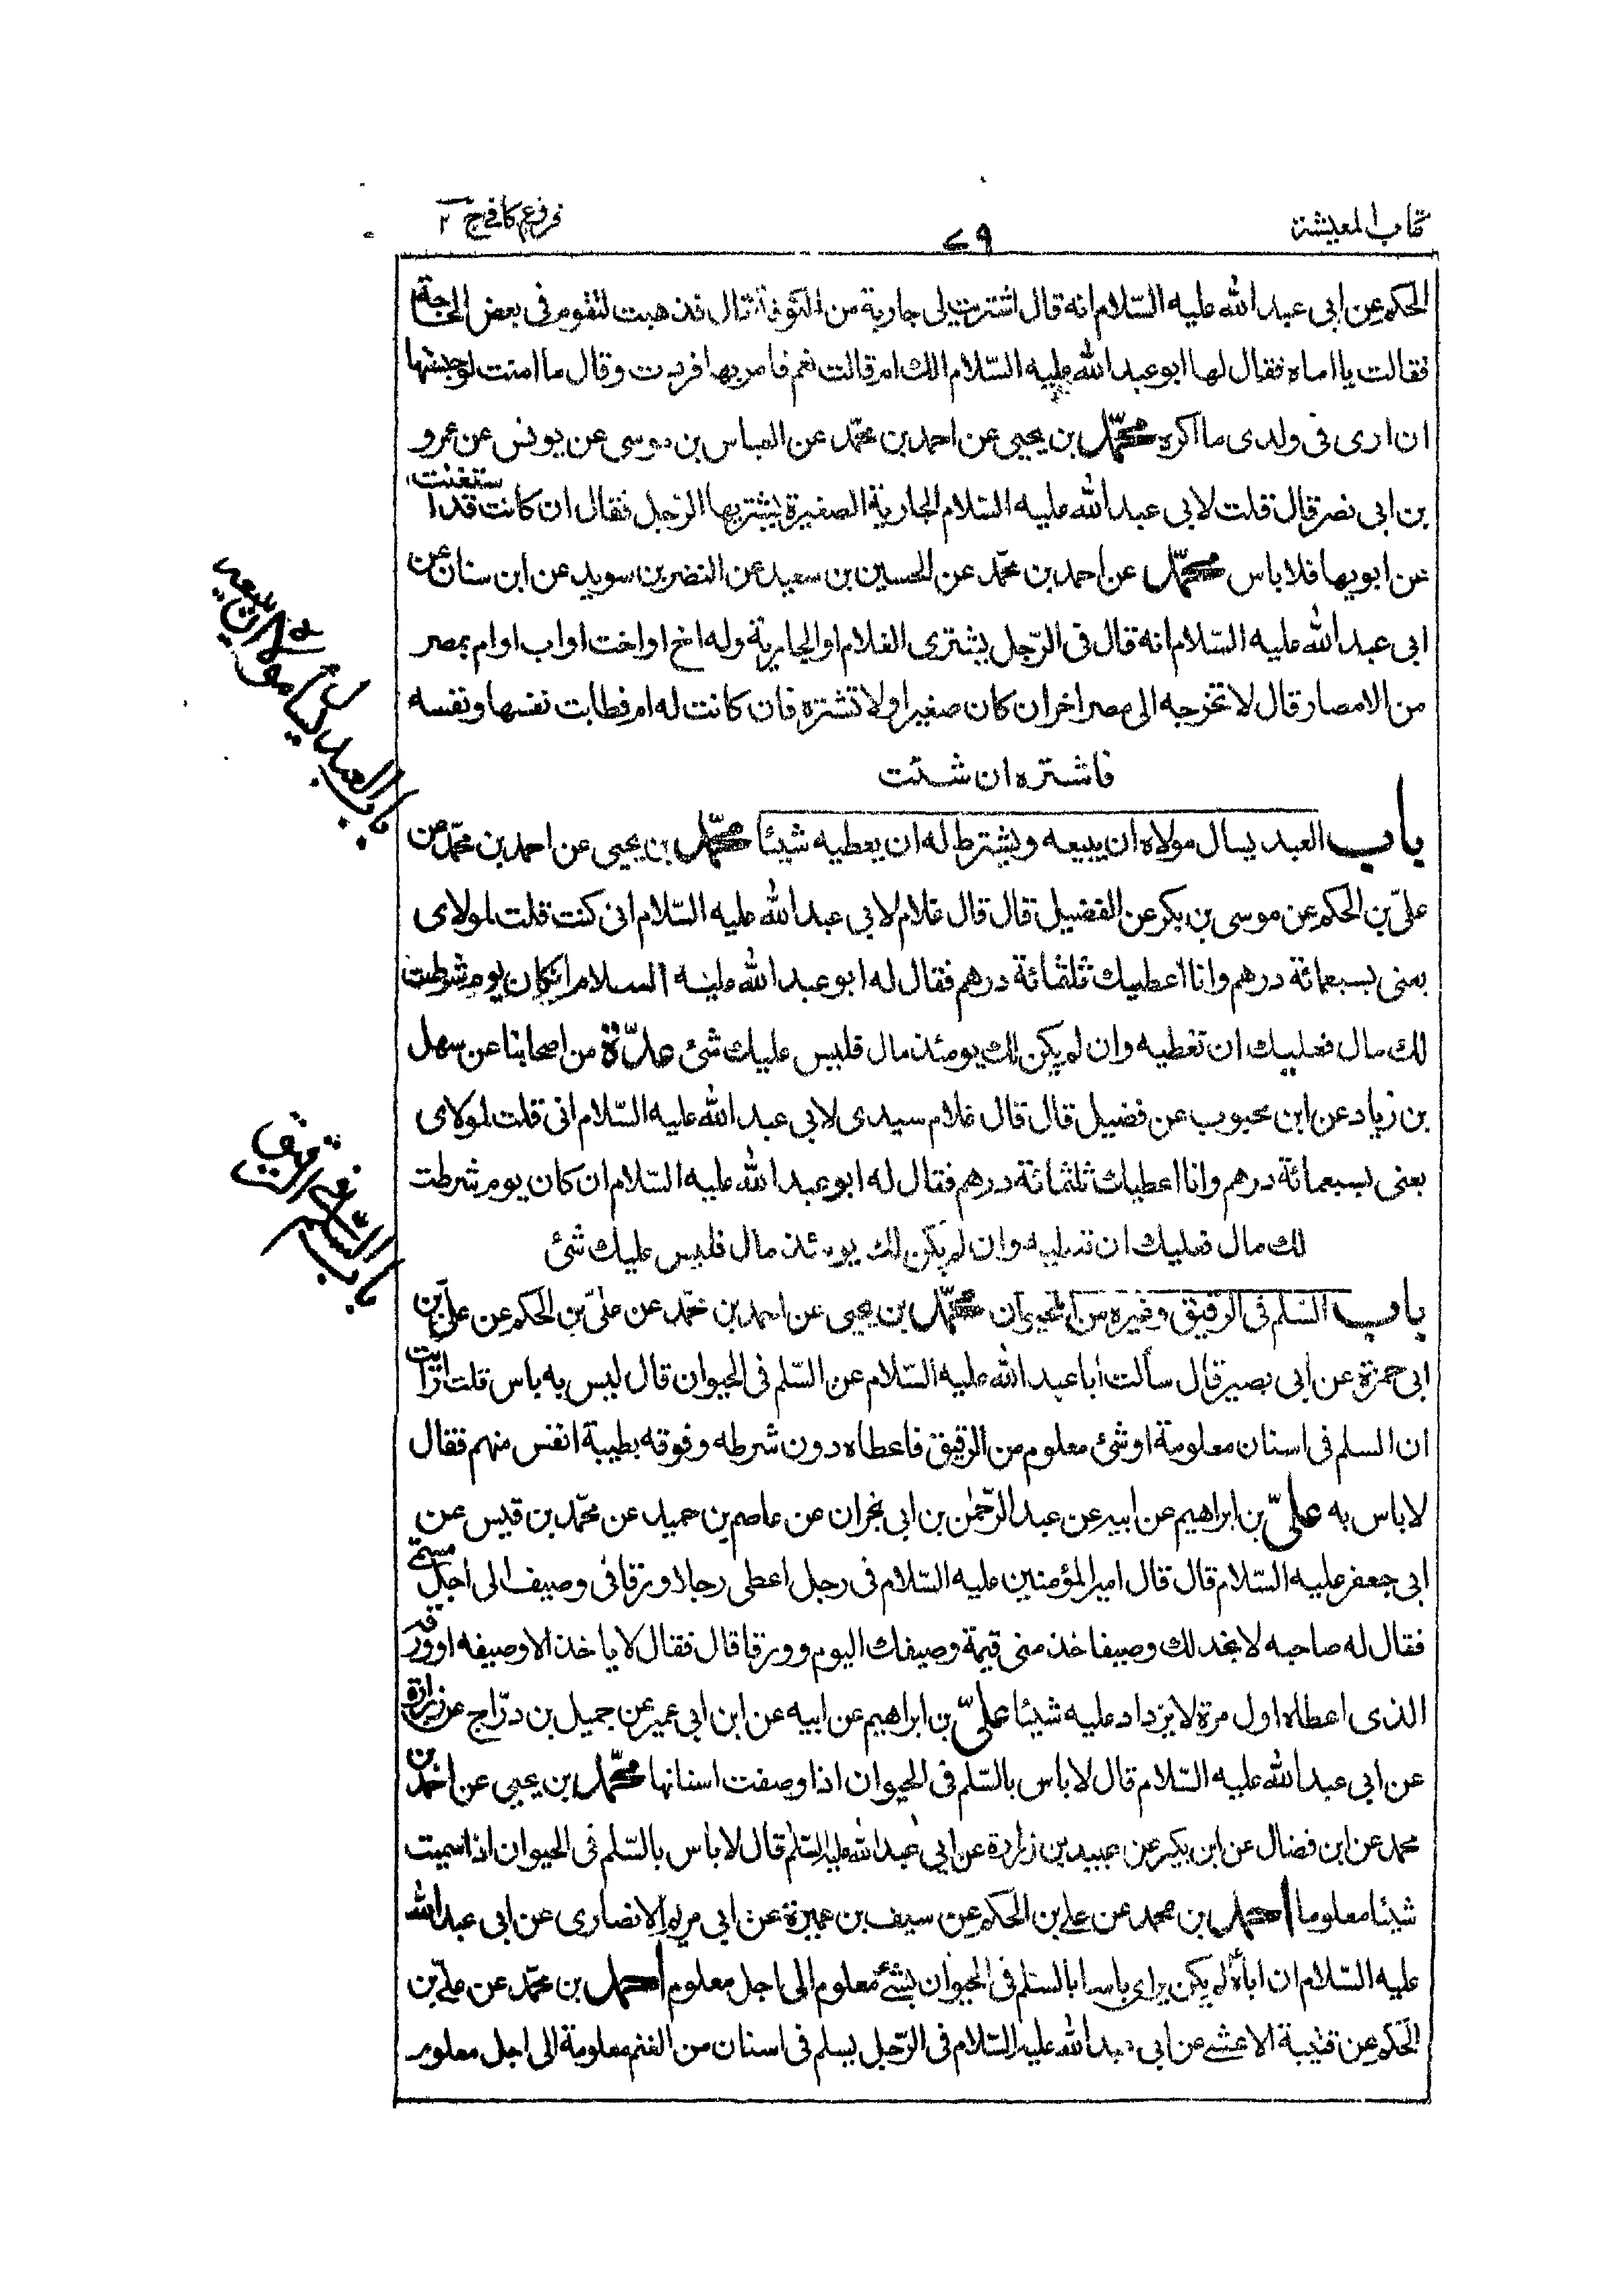 كتاب المعيشة
٧٩
فروع كافي ج ٢
الحكم عن ابى عبد الله عليه السّلام انه قال اشتريت لى جارية من الكوفة قال فذهبت لتقوم فى بعض الحاجة
فقالت يا اماه فقال لها ابو عبد الله عليه السّلام الك ام قالت نعم فامر بها فردت وقال ما امنت لو حبستها
ان ارى فى ولدى ما اكره محمّد بن يحيى عن احمد بن محمّد عن العباس بن موسى عن يونس عن عمرو
بن ابى نصر قال قلت لابى عبد الله عليه السّلام الجارية الصغيرة يشتريها الرّجل فقال ان كانت قد استغنت
عن ابويها فلا باس محمّد عن احمد بن محمّد عن الحسين بن سعيد عن النضر بن سويد عن ابن سنان عن
ابى عبد الله عليه السّلام انه قال فى الرّجل يشترى الغلام او الجارية وله اخ او اخت او اب او ام بمصر
من الامصار قال لا تخرجه الى مصر اخر ان كان صغيرا ولا تشتره فان كانت له ام فطابت نفسها ونفسه
فاشتره ان شئت
باب العبد يسال مولاه ان يبيعه ويشترط له ان يعطيه شيئا محمّد بن يحيى عن احمد بن محمّد عن
علىّ بن الحكم عن موسى بن بكر عن الفضيل قال قال غلام لابى عبد الله عليه السّلام انى كنت قلت لمولاى
بعنى بسبعمائة درهم وانا اعطيك ثلثمائة درهم فقال له ابو عبد الله عليه السلام ان كان يوم شرطت
لك مال فعليك ان تعطيه وان لم يكن لك يومئذ مال فليس عليك شئ عدّة من اصحابنا عن سهل
بن زياد عن ابن محبوب عن فضيل قال قال غلام سيدى لابى عبد الله عليه السّلام انى قلت لمولاى
بعنى بسبعمائة درهم وانا اعطيك ثلثمائة درهم فقال له ابو عبد الله عليه السّلام ان كان يوم شرطت
لك مال فعليك ان تعطيه وان لم يكن لك يومئذ مال فليس عليك شئ
باب السّلم فى الرقيق وغيره من الحيوان محمّد بن يحيى عن احمد بن محمّد عن علىّ بن الحكم عن علىّ بن
ابى حمزة عن ابى بصير قال سألت ابا عبد الله عليه السّلام عن السّلم فى الحيوان قال ليس به باس قلت ارأيت
ان السلم فى اسنان معلومة او شئ معلوم من الرقيق فاعطاه دون شرطه وفوقه بطيبة انفس منهم فقال
لا باس به علىّ بن ابراهيم عن ابيه عن عبد الرّحمٰن بن ابى نجران عن عاصم بن حميد عن محمّد بن قيس عن
ابى جعفر عليه السّلام قال قال امير المؤمنين عليه السّلام فى رجل اعطى رجلا ورقا فى وصيف الى اجل مسمّى
فقال له صاحبه لا نجد لك وصيفا خذ منى قيمة وصيفك اليوم وورقا قال فقال لا ياخذ الا وصيفه او ورقه
الذى اعطاه اول مرة لا يزداد عليه شيئا علىّ بن ابراهيم عن ابيه عن ابن ابى عمير عن جميل بن درّاج عن زرارة
عن ابى عبد الله عليه السّلام قال لا باس بالسّلم فى الحيوان اذا وصفت اسنانها محمّد بن يحيى عن احمد بن
محمد عن ابن فضال عن ابن بكير عن عبيد بن زرارة عن ابى عبد الله عليه السّلم قال لا باس بالسّلم فى الحيوان اذا سميت
شيئا معلوما احمد بن محمد عن على بن الحكم عن سيف بن عميرة عن ابى مريم الانصارى عن ابى عبد الله
عليه السّلام ان اباه لم يكن يرى باسا بالسّلم فى الحيوان بشئ معلوم الى اجل معلوم احمد بن محمّد عن علىّ بن
الحكم عن قتيبة الاعشى عن ابى عبد الله عليه السّلام فى الرّجل يسلم فى اسنان من الغنم معلومة الى اجل معلوم
باب العبد يسأل مولاه ان يبيعه
باب السّلم فى الرقيق